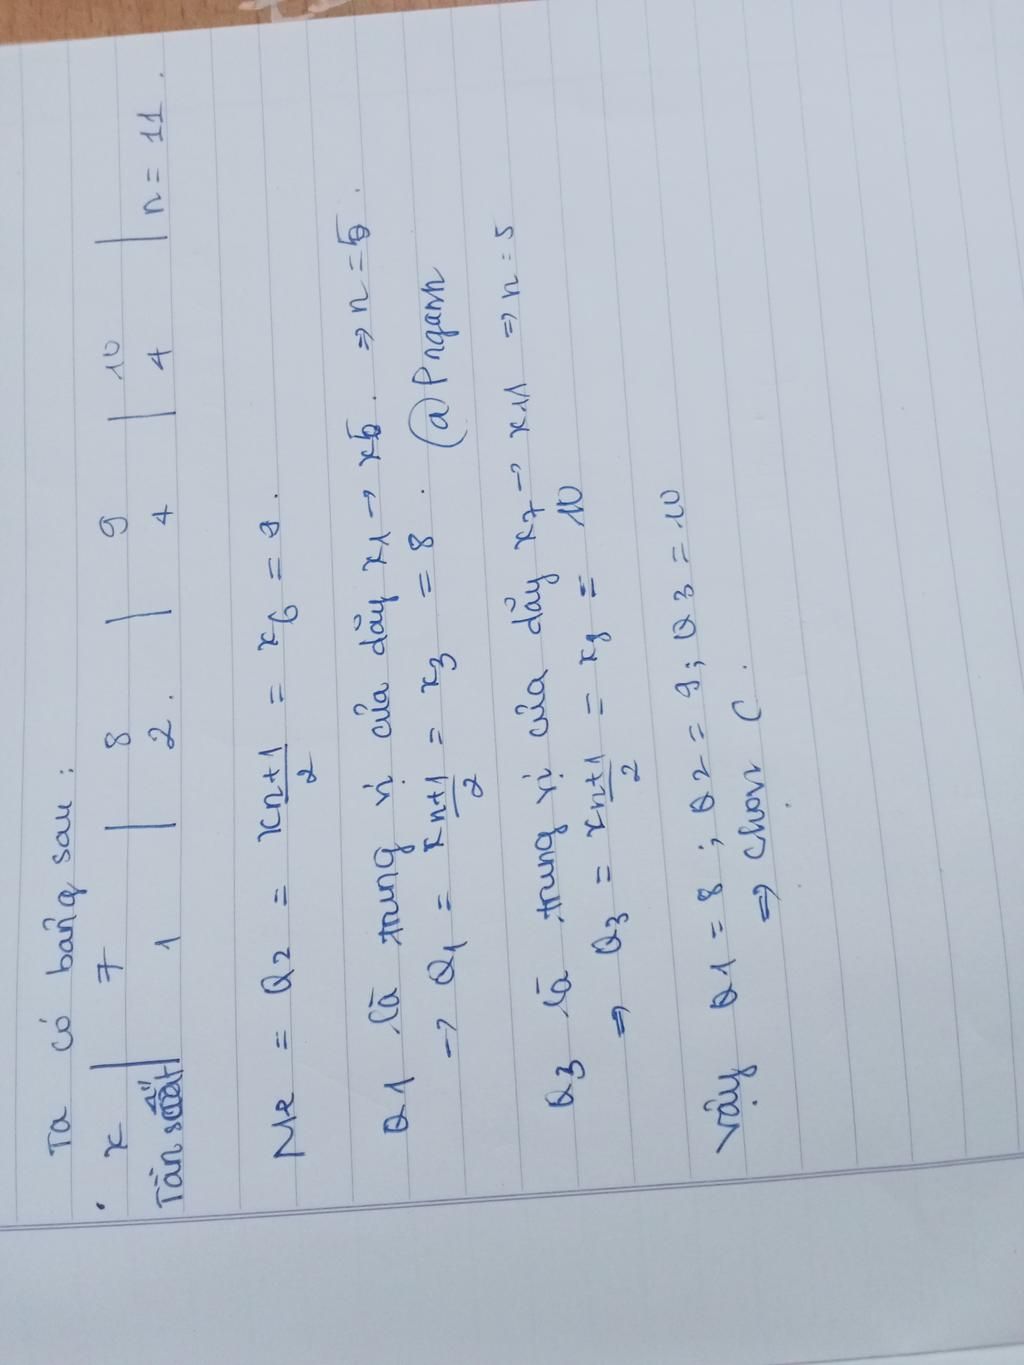 Ta có bảng sau:
x | 7 | 8 | 9 | 10 |
Tần số | 1 | 2. | 4 | 4 | n = 11.
Me = Q2 = x n+1/2 = x6 = 9.
Q1 là trung vị của dãy x1 → x5. => n = 5.
→ Q1 = x n+1/2 = x3 = 8. @Pngann
Q3 là trung vị của dãy x7 → x11 => n = 5
=> Q3 = x n+1/2 = x9 = 10
Vậy Q1 = 8; Q2 = 9; Q3 = 10
=> Chọn C.